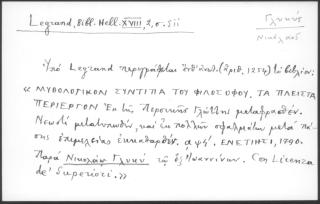 Legrand, Bibl. Hell. XVIII, 2, σ. 511
Γλυκύς
Νικόλαος
Ὑπό Legrand περιγράφεται ὑπ' ἀριθ. (ἀριθ. 1254) τὸ βιβλίον:
« ΜΥΘΟΛΟΓΙΚΟΝ ΣΥΝΤΙΠΑ ΤΟΥ ΦΙΛΟΣΟΦΟΥ. ΤΑ ΠΛΕΙΣΤΑ
ΠΕΡΙΕΡΓΟΝ Ἐκ τῆς Περσικῆς Γλώττης μεταφρασθέν.
Νεωστί μετατυπωθέν, καὶ ἐκ πολλῶν σφαλμάτων μετά πά-
σης ἐπιμελείας ἐκκαθαρθέν. αψϟ΄. ΕΝΕΤΙΗΣΙ, 1790.
Παρά Νικολάῳ Γλυκύ τῷ ἐξ Ἰωαννίνων. Con Licenza
de' Superiori. »